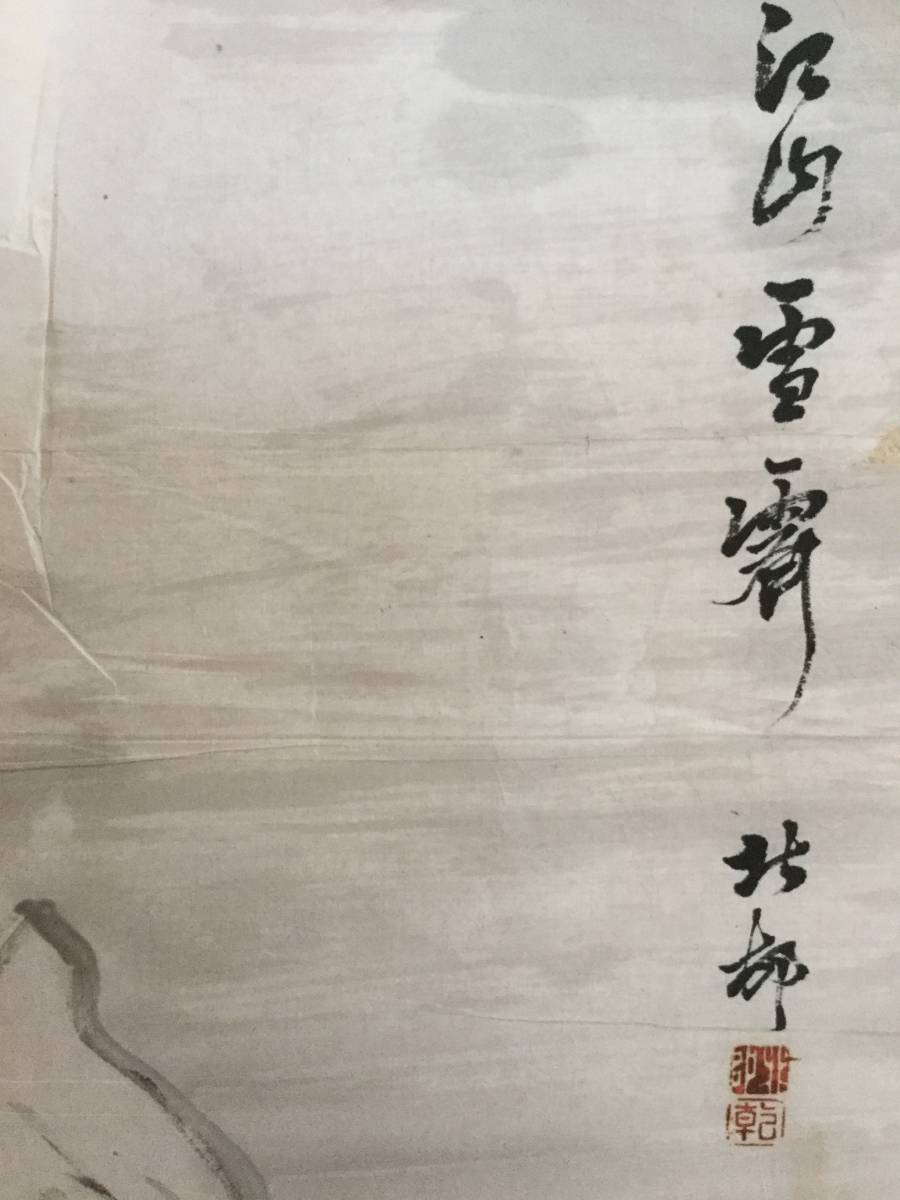 江山雪霽
北都
乾